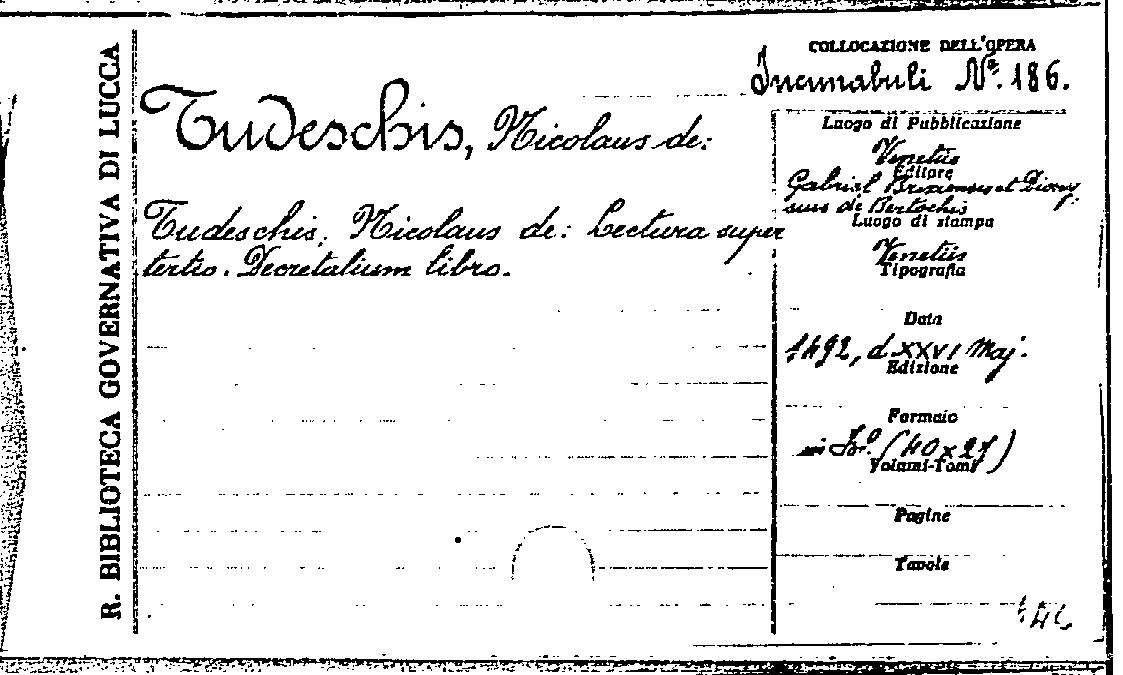 R. BIBLIOTECA GOVERNATIVA DI LUCCA
Tudeschis, Nicolaus de:
Tudeschis, Nicolaus de: Lectura super
tertio. Decretalium libro.
COLLOCAZIONE DELL'OPERA
Incunabuli Nº. 186.
Luogo di Pubblicazione
Venetiis
Editore
Gabriel Brixiensis et Diony
sius de Bertochis
Luogo di stampa
Venetiis
Tipografia
Data
1492, d XXVI Maj.
Edizione
Formato
in Fº. (40x27)
Volumi-Tomi
Pagine
Tavole